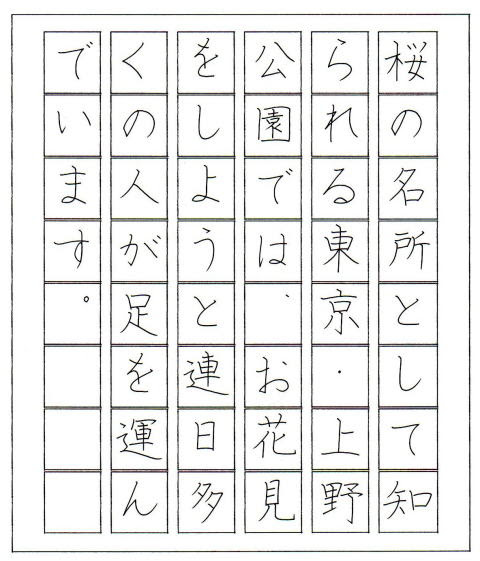 桜の名所として知
られる東京・上野
公園では、お花見
をしようと連日多
くの人が足を運ん
でいます。